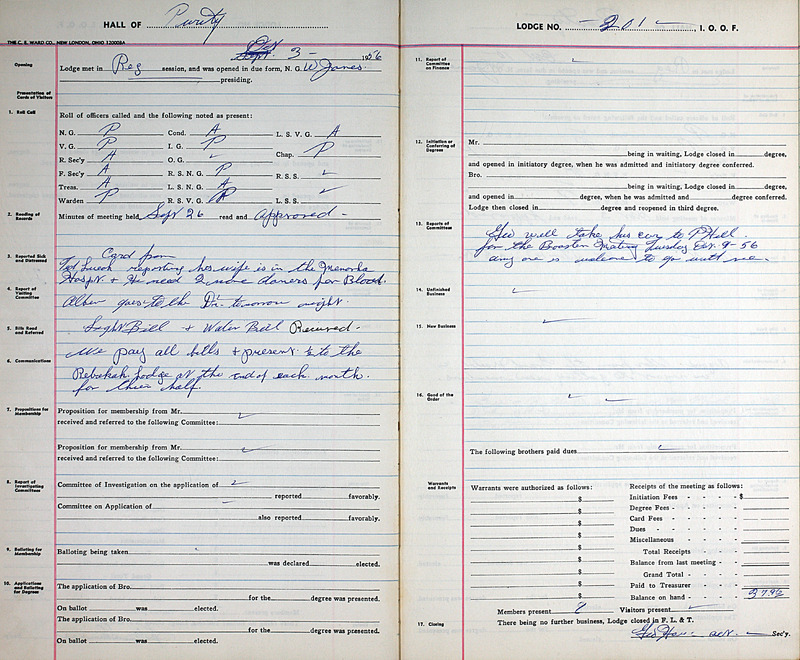 HALL OF Purity
THE C. E. WARD CO., NEW LONDON, OHIO 120008A
Oct 3 - 1956
Opening
Lodge met in Reg session, and was opened in due form, N. G. W Janes
presiding.
Presentation of Cards of Visitors
1. Roll Call
Roll of officers called and the following noted as present:
N. G. P Cond. A L. S. V. G. A
V. G. P I. G. P Chap. P
R. Sec'y A O. G. ✓
F. Sec'y A R. S. N. G. P R. S. S. ✓
Treas. A L. S. N. G. A
Warden P R. S. V. G. P L. S. S. ✓
2. Reading of Records
Minutes of meeting held Sept 26 read and Approved -
3. Reported Sick and Distressed
Card from
Ted reporting his wife is in the Menorha
Hospt. + He need 2 more doners for Blood.
4. Report of Visiting Committee
Alber goes to the Dr. tomorrow night.
5. Bills Read and Referred
Light Bill + Water Bill Received.
6. Communications
We pay all bills + present to the
Rebekah Lodge at the end of each month.
for their half.
7. Propositions for Membership
Proposition for membership from Mr. ✓
received and referred to the following Committee:
Proposition for membership from Mr. ✓
received and referred to the following Committee:
8. Report of Investigating Committees
Committee of Investigation on the application of ✓
reported favorably.
Committee on Application of
also reported favorably.
9. Balloting for Membership
Balloting being taken
was declared elected.
10. Applications and Balloting for Degrees
The application of Bro.
for the degree was presented.
On ballot was elected.
The application of Bro.
for the degree was presented.
On ballot was elected.
LODGE NO. 201, I. O. O. F.
11. Report of Committee on Finance
✓
12. Initiation or Conferring of Degrees
Mr.
being in waiting, Lodge closed in degree,
and opened in initiatory degree, when he was admitted and initiatory degree conferred.
Bro.
being in waiting, Lodge closed in degree,
and opened in degree, when he was admitted and degree conferred.
Lodge then closed in degree and reopened in third degree.
13. Reports of Committees
Geo will take his car to P Hill
for the Booster Meeting Tuesday Oct. 9-56
any one is welcome to go with me.
14. Unfinished Business
✓
15. New Business
✓
16. Good of the Order
✓ ✓
The following brothers paid dues ✓
Warrants and Receipts
Warrants were authorized as follows: Receipts of the meeting as follows:
$ Initiation Fees - - - - $
$ Degree Fees - - - -
$ Card Fees - - - -
$ Dues - - - -
$ Miscellaneous - - - -
$ Total Receipts
$ Balance from last meeting -
$ Grand Total - -
$ Paid to Treasurer - -
$ Balance on hand -
Members present Visitors present ✓
17. Closing
There being no further business, Lodge closed in F. L. & T.
Sec'y.